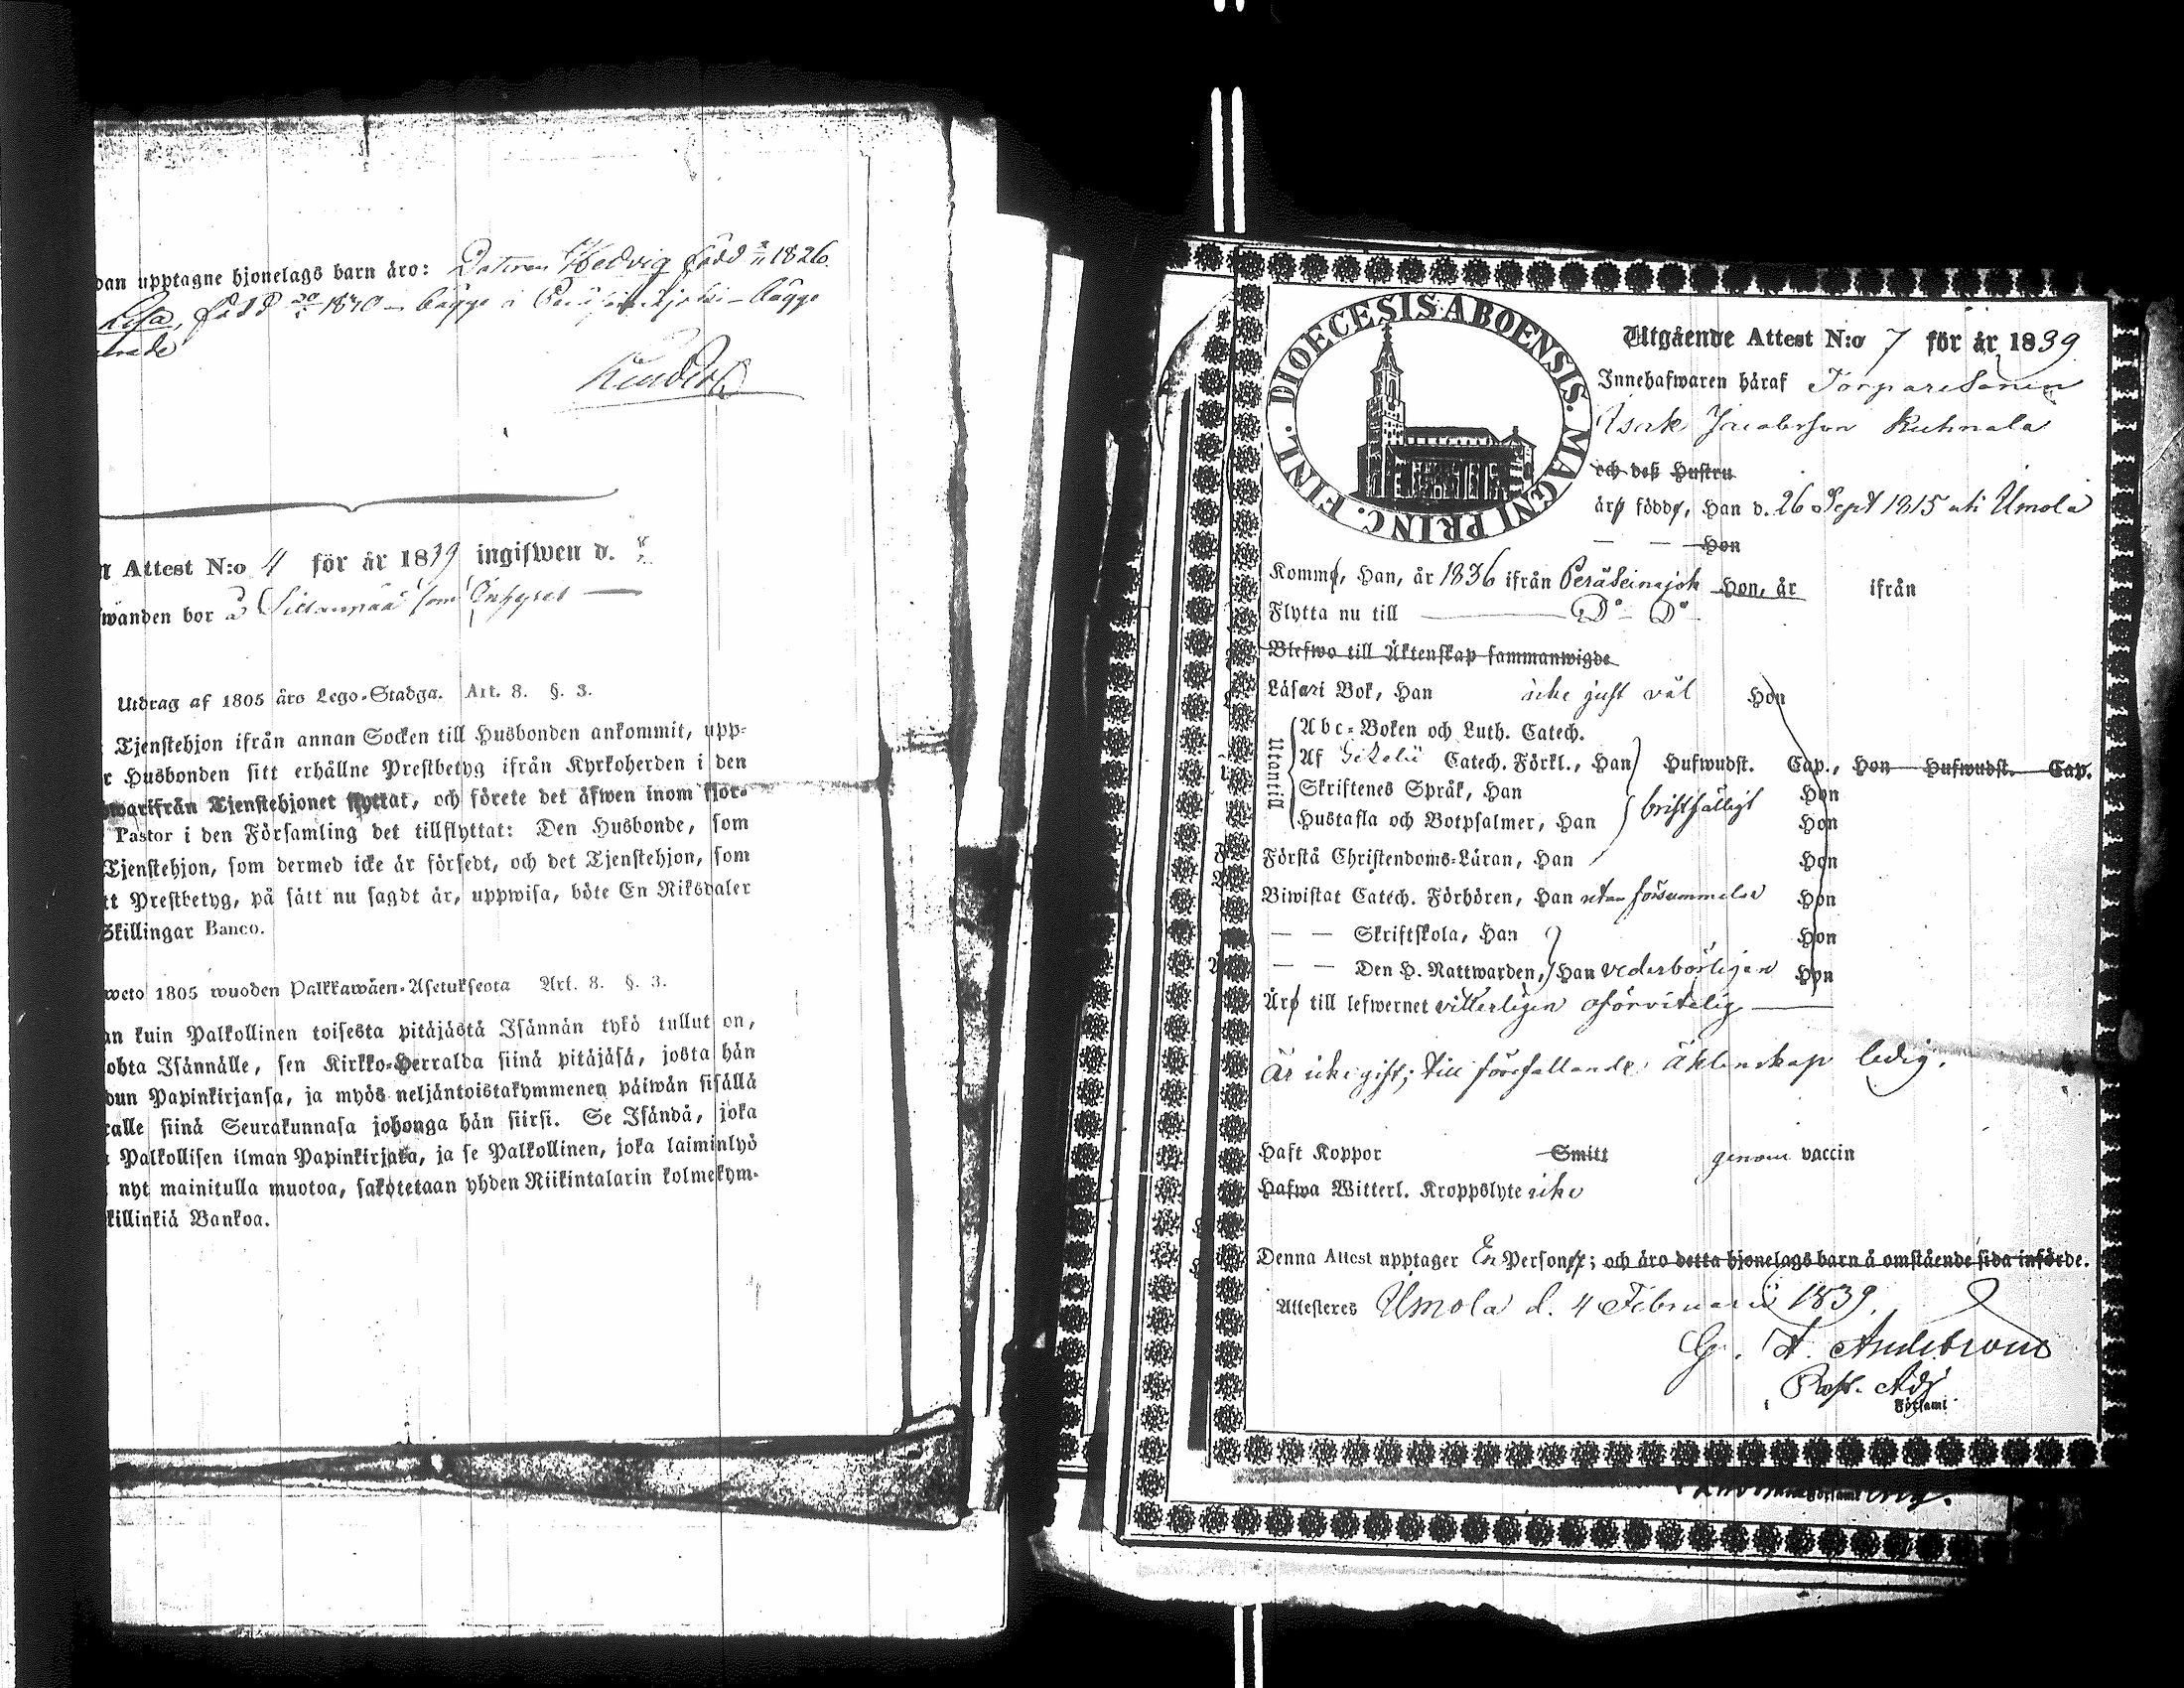 dan upptagne hjonelags barn äro: Dottren Hedvig född 1826
Lisa, född 1840 – bägge i – bägge
Attest N:o 4 för år 1839 ingifwen d.
wanden bor som Inhyses
Utdrag af 1805 års Lego-Stadga. Art. 8. §. 3.
Tjenstehjon ifrån annan Socken till Husbonden ankommit, upp-
r Husbonden sitt erhållne Prestbetyg ifrån Kyrkoherden i den
hwarifrån Tjenstehjonet flyttat, och förete det äfwen inom fjor-
Pastor i den Församling det tillflyttat: Den Husbonde, som
Tjenstehjon, som dermed icke är försedt, och det Tjenstehjon, som
tt Prestbetyg, på sätt nu sagdt är, uppwisa, böte En Riksdaler
Skillingar Banco.
weto 1805 wuoden Palkkawäen-Asetuksesta Art. 8. §. 3.
an kuin Palkollinen toisesta pitäjästä Isännän tykö tullut on,
ohta Isännälle, sen Kirkko-Herralda siinä pitäjäsä, josta hän
dun Papinkirjansa, ja myös neljäntoistakymmenen päiwän sisällä
ralle siinä Seurakunnasa johonga hän siirsi. Se Isändä, joka
Palkollisen ilman Papinkirjata, ja se Palkollinen, joka laiminlyö
nyt mainitulla muotoa, sakotetaan yhden Riikintalarin kolmekym-
killinkiä Bankoa.
DIOECESIS ABOENSIS. MAGNI PRINC. FINL.
Utgående Attest N:o 7 för år 1839
Innehafwaren häraf Torparesonen
Isak Jacobsson Kuhnala
och deß Hustru
äro födde, Han d. 26 Sept 1815 uti Ilmola
— — Hon
Komme, Han, år 1836 ifrån Peräseinäjok Hon, år ifrån
Flytta nu till D° – D°
Blefwo till Äktenskap sammanwigde
Läsa i Bok, Han icke just väl Hon
Utantill
Abc-Boken och Luth. Catech.
Af Catech. Förkl., Han Hufwudst. Cap., Hon Hufwudst. Cap.
Skriftenes Språk, Han bristfälligt Hon
Hustafla och Botpsalmer, Han Hon
Förstå Christendoms-Läran, Han Hon
Biwistat Catech. Förhören, Han utan försummelse Hon
— — Skriftskola, Han Hon
— — Den H. Nattwarden, Han vederbörligen Hon
Äro till lefwernet vitterligen oförvitelig
Är icke gift; till förefallande äktenskap ledig.
Haft Koppor Smitt genom vaccin
Hafwa Witterl. Kroppslyte icke
Denna Attest upptager En Personer; och äro detta hjonelags barn å omstående sida införde.
Attesteres Ilmola d. 4 Februarii 1839.
Past. Adj.
i Församl.